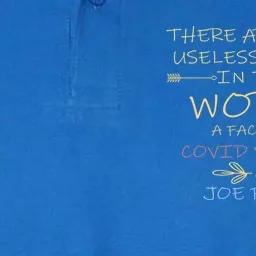 THERE A
USELESS
IN T
WO
A FAC
COVID
JOE